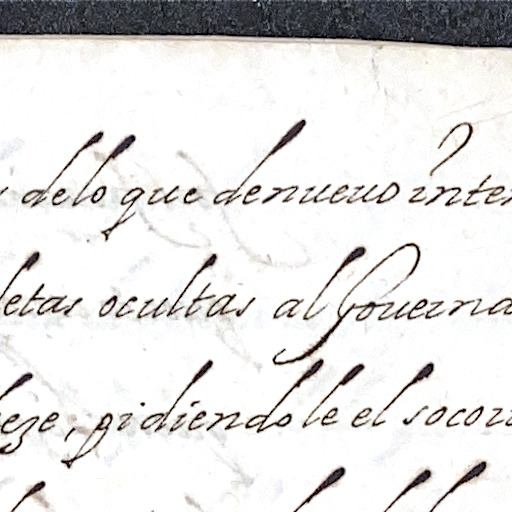 delo que denueuo inten
letas ocultas al Gouerna
eze, pidiendole el socorr